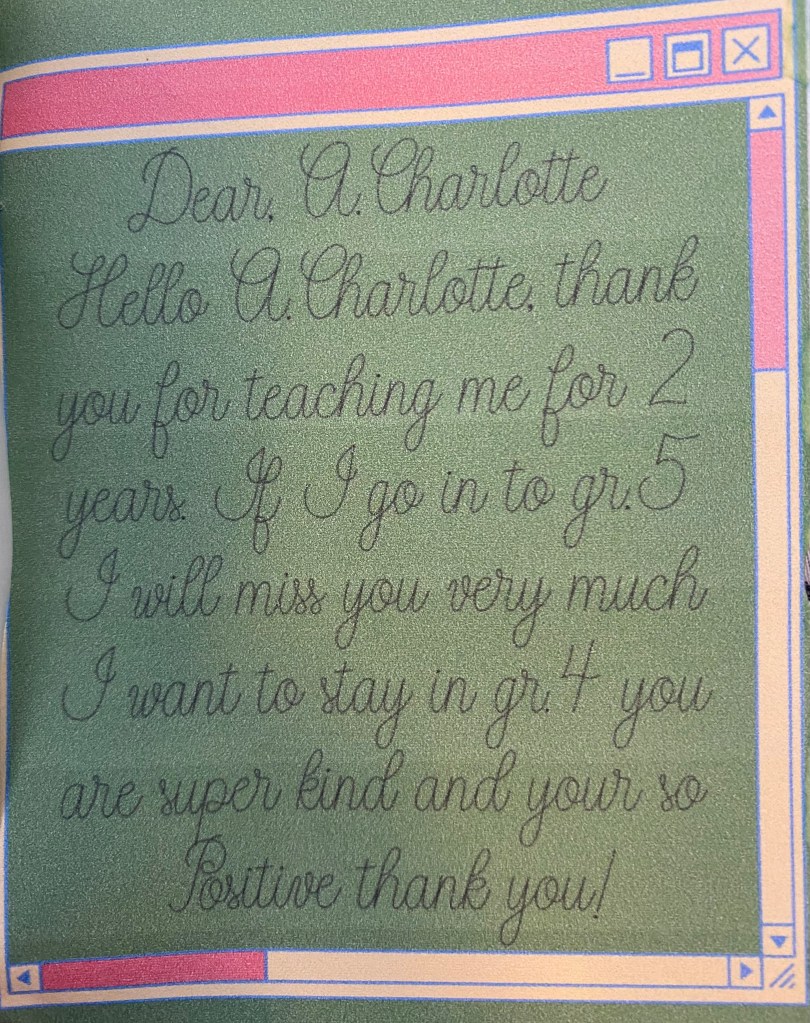 Dear, A. Charlotte
Hello A. Charlotte, thank
you for teaching me for 2
years. If I go in to gr.5
I will miss you very much
I want to stay in gr.4 you
are super kind and your so
Positive thank you!